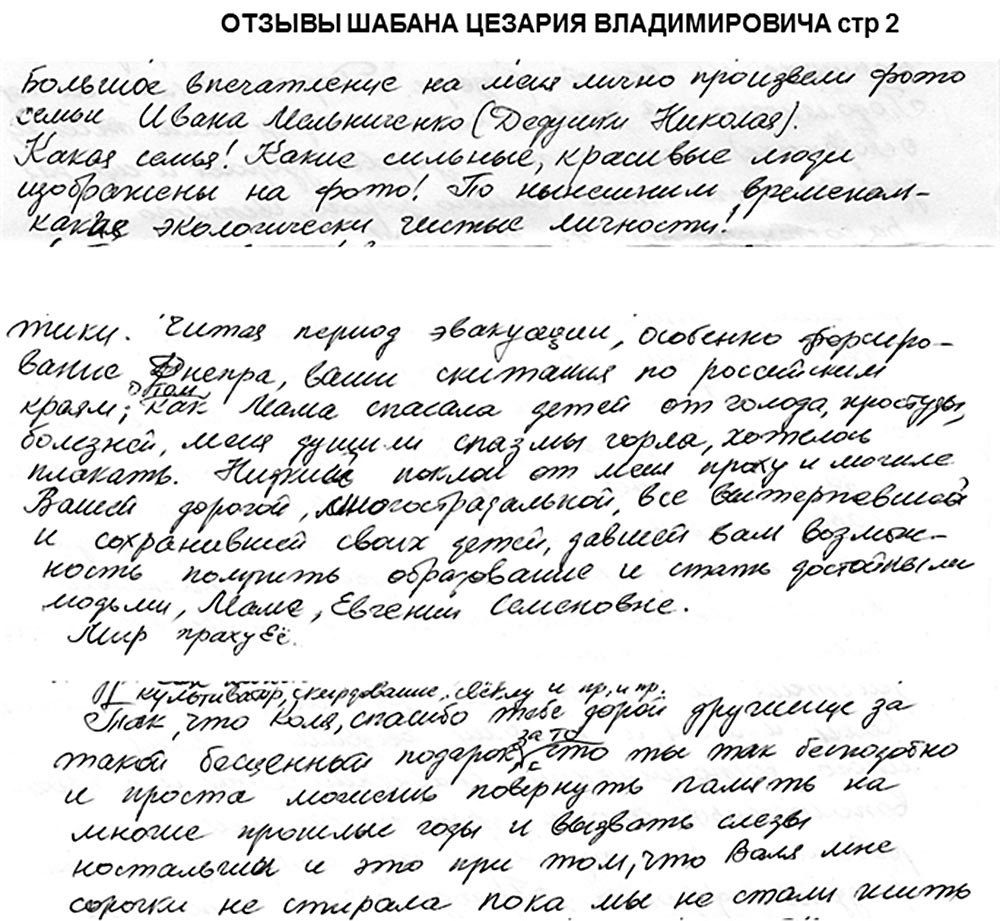 ОТЗЫВЫ ШАБАНА ЦЕЗАРИЯ ВЛАДИМИРОВИЧА стр 2
Большое впечатление на меня лично произвели фото
семьи Ивана Мельниченко (Дедушки Николая).
Какая семья! Какие сильные, красивые люди
изображены на фото! По нынешним временам-
какие экологически чистые личности!
тики. Читая период эвакуации, особенно форсиро-
вание Днепра, ваши скитания по российским
краям, там
как Мама спасала детей от голода, простуды,
болезней, меня душили спазмы горла, хотелось
плакать. Низкий поклон от меня праху и могиле
Вашей дорогой, многострадальной, все вытерпевшей
и сохранившей своих детей, давшей вам возмож-
ность получить образование и стать достойными
людьми, Маме, Евгении Семеновне.
Мир праху Её.
культиватор, скирдование, свёклу и пр. и пр.
Так, что Коля, спасибо тебе дорой дружище за
за то
такой бесценный подарок, что ты так бесподобно
и проста можешь повернуть память на
многие прошлые годы и вызвать слезы
ностальгии и это при том, что Валя мне
сорочки не стирала пока мы не стали жить